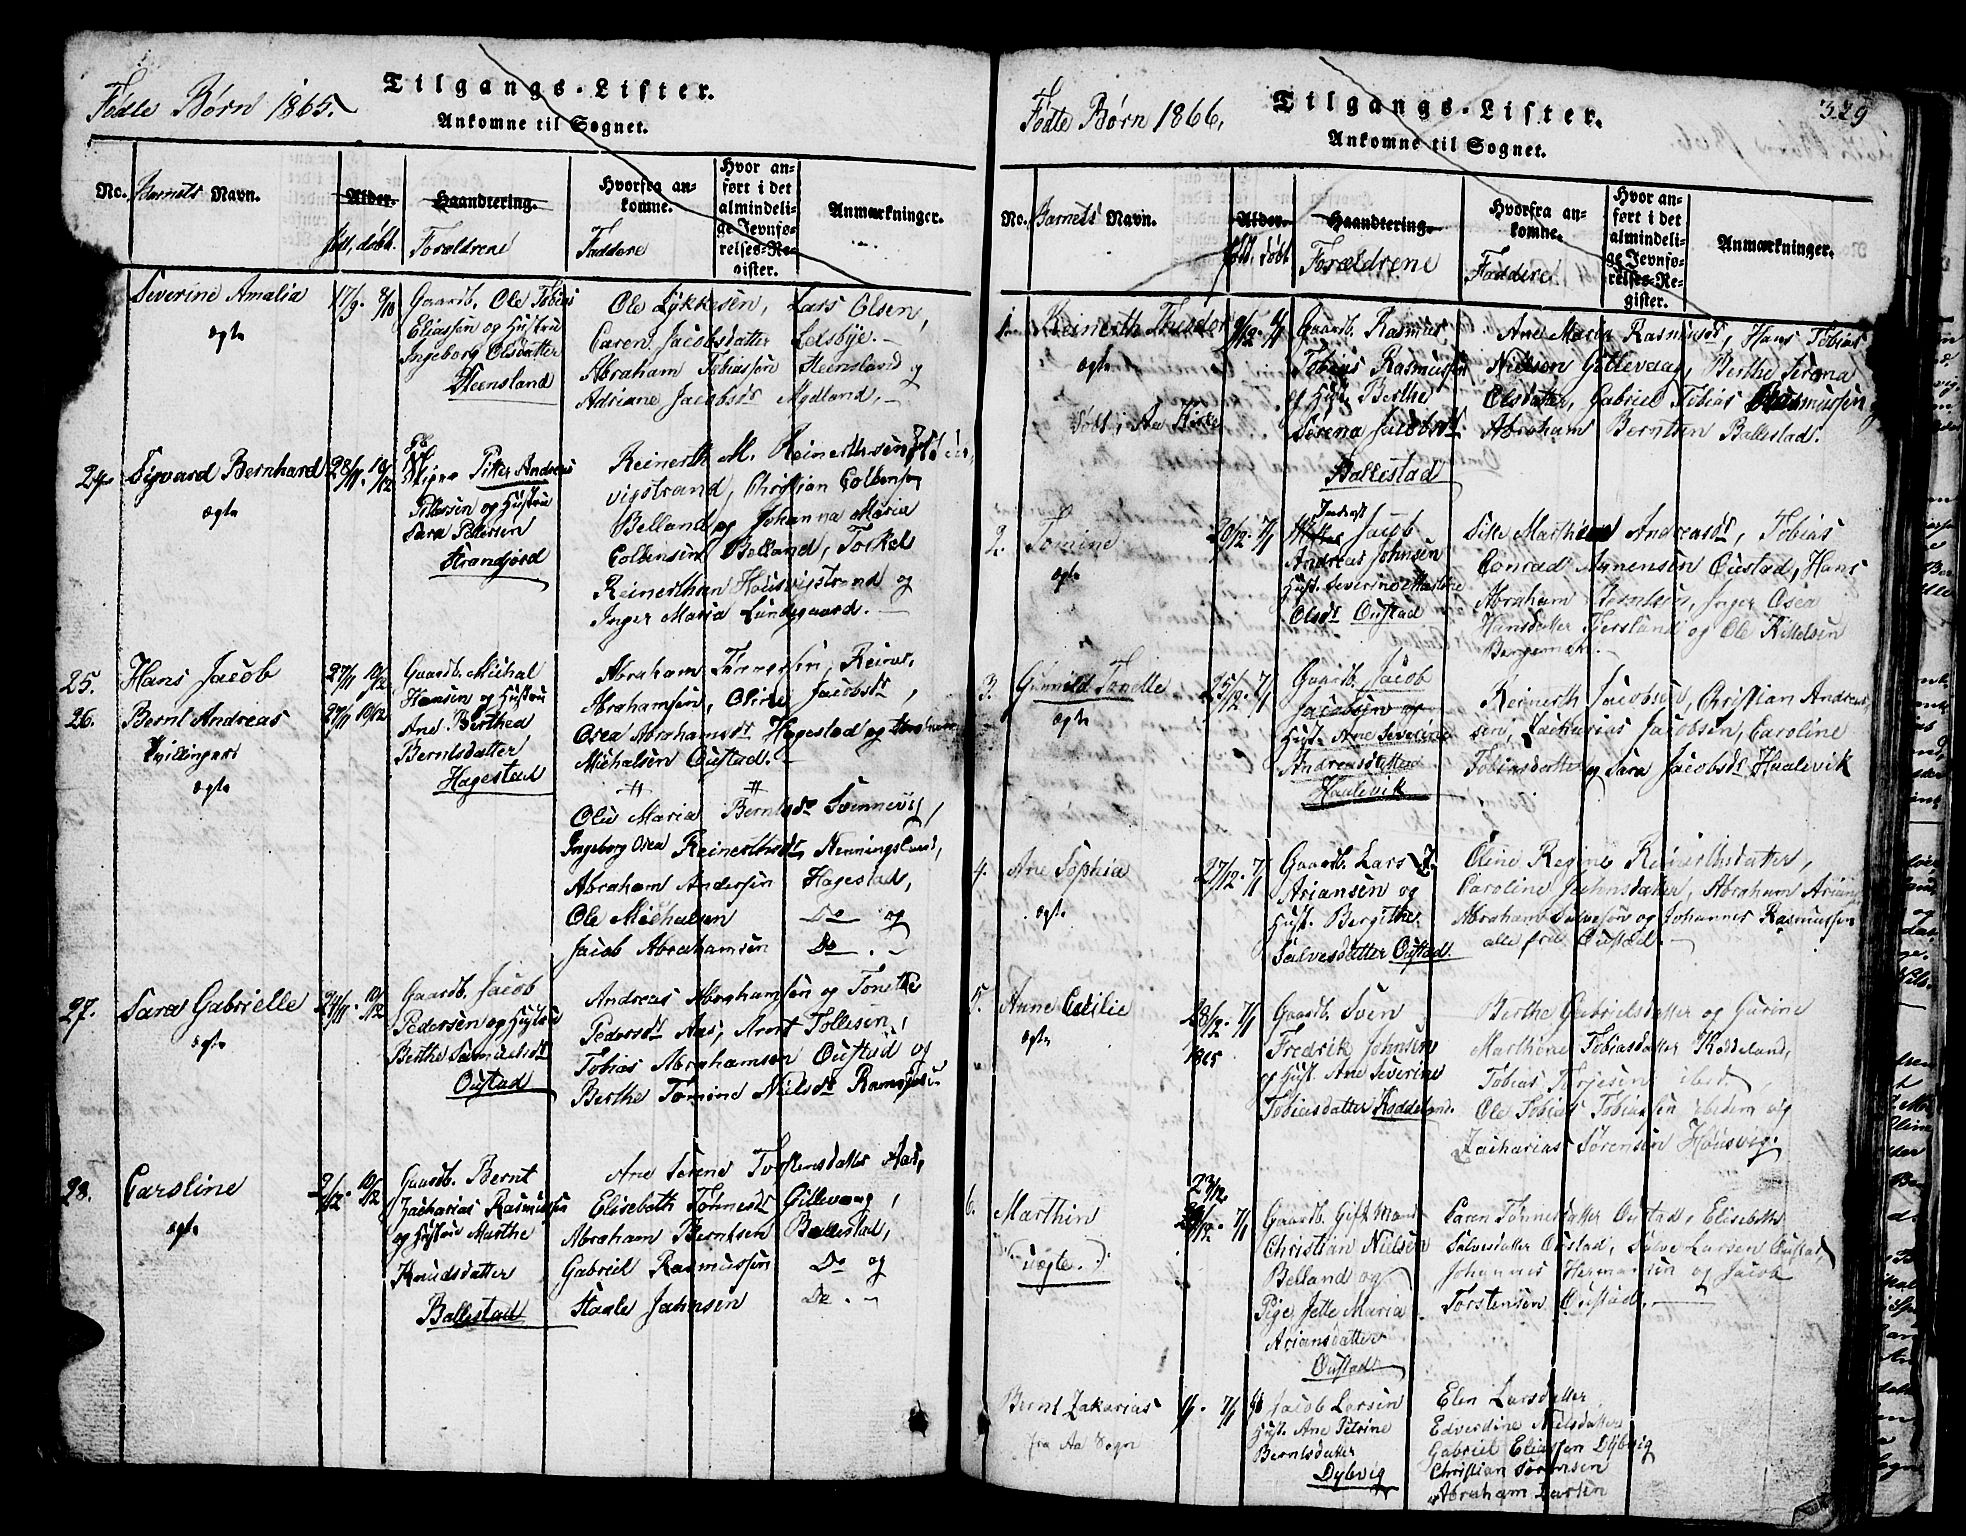 Fødte Børn 1865.
Tilgangs-Lister.
Ankomne til Sognet.
No. Barnets Navn.
Alder.
født, døbt.
Haandtering.
Forældrene
Hvorfra an-
komne.
Faddere
Hvor an-
ført i det
almindeli-
ge Jevnfø-
relses-Re-
gister.
Anmærkninger.
Severine Amalia
ægte
17/9. 8/10
Gaardb. Ole Tobias
Eliassen og Hustru
Ingeborg Olsdatter
Steensland
Ole Lykkesen, Lars Olsen,
Caren Jacobsdatter
Abraham Tobiassen Steensland og
Adriane Jacobsdr Mydland.
24. Sigvard Bernhard
ægte
28/11. 10/12
Pige Peter Andreas
Pettersen og Hustru
Sara Pedersen
Strandfjord
Reinerth M. Reinerthsen
vigstrand, Christian Colbensen
Belland og Johanna Maria
Colbensen Belland, Torkel
Reinerthsen Housvigstrand og
Inger Maria Lundegaard.
25. Hans Jacob
27/11 10/12
26. Bernt Andreas
27/11 10/12
Tvillinger
ægte
Gaardb. Michal
Hansen og Hustru
Ane Berthea
Berntsdatter
Hagestad
Abraham Tønnessen, Reiner
Abrahamsen, Oline Jacobsdr,
Osea Abrahamsdr Hagestad og Abraham
Michalsen Oustad.
Ole Maria Berntsdr Svennevig,
Ingeborg Osea Reinerthsdr Henningsland,
Abraham Andersen Hagestad,
Ole Michalsen Do og
Jacob Abrahamsen Do.
27. Sara Gabrielle
ægte
24/11. 10/12
Gaardb. Jacob
Pedersen og Hustru
Berthe Samuelsdr
Oustad
Andreas Abrahamsen og Tonette
Pedersdr Aas, Arnt Tollesen,
Tobias Abrahamsen Oustad og
Berthe Tomine Nielsdr
28. Caroline
ægte
2/12. 10/12
Gaardb. Bernt
Zacharias Rasmussen
og Hustru Marthe
Knudsdatter
Ballestad
Ane Serene Torstensdatter Aas,
Elisabeth Tønnesdr Gillevaag,
Abraham Berntsen Ballestad,
Gabriel Rasmussen Do og
Staale Jahnsen Do.
Fødte Børn 1866.
Tilgangs-Lister.
Ankomne til Sognet.
329
No. Barnets Navn.
Alder.
født, døbt
Haandtering.
Forældrene
Hvorfra an-
komne.
Faddere
Hvor an-
ført i det
almindeli-
ge Jevnfø-
relses-Re-
gister.
Anmærkninger.
1. Reinerth Theodor
ægte
døbt i Aa Kirke
Gaardb. Rasmus
Tobias Rasmussen
og Hust. Berthe
Serena Jacobsdr
Ballestad
Ane Maria Rasmusdr, Hans Tobias
Nielsen Gillevaag, Berthe Serena
Olsdatter, Gabriel Tobias Rasmussen og
Abraham Berntsen Ballestad.
2. Tomine
ægte
20/12. 7/1
Jacob
Andreas Johnsen
Hust. Severine Marthine
Olsdr Oustad
Marthea Andreasdr, Tobias
Conrad Aanensen Oustad, Hans
Abraham Berntsen, Inger Osea
Hansdatter Fjersland og Ole Kittelsen
3. Gunnild Tonette
ægte
25/12. 7/1
Gaardb. Jacob
Jacobsen og
Hust. Ane Severine
Andreasdatter
Haalevik
Reinerth Jacobsen, Christian Andrea-
sen, Zacharias Jacobsen, Caroline
Tobiasdatter og Sara Jacobsdr Haalevik
4. Ane Sophia
ægte
27/12. 7/1
Gaardb. Lars T.
Ariansen og
Hust. Bergithe
Salvesdatter Oustad.
Oline Regine Reinerthsdatter,
Caroline Jahnsdatter, Abraham Arians
Abraham Salvesen og Johannes Rasmussen
alle fra Oustad.
5. Anne Cecilie
ægte
28/12. 7/1
1865
Gaardb. Sven
Fredrik Johnsen
og Hust. Ane Severine
Tobiasdatter Koddeland.
Berthe Gabrielsdatter og Gurine
Marthine Tobiasdatter Koddeland,
Tobias Terjesen ibid.,
Ole Tobias Tobiassen ibidem og
Zacharias Sørensen Housvig.
6. Marthin
(: uægte. :)
23/12
7/1
Gaardb. Gift Mand
Christian Nielsen
Belland og
Pige Jette Maria
Ariansdatter
Oustad
Caren Tønnesdatter Oustad, Elisabeth
Salvesdatter Oustad, Salve Larsen Oustad,
Johannes Hermansen og Jacob
Torstensen Oustad.
Bernt Zakarias
fra Aa Sogn
1/1. 7/1
Jacob Larsen
Hust. Ane Petrine
Berntsdatter
Dybvig
Elen Larsdatter
Edverdine Nielsdatter
Gabriel Eliassen Dybvig
Christian Sørensen
Abraham Larsen